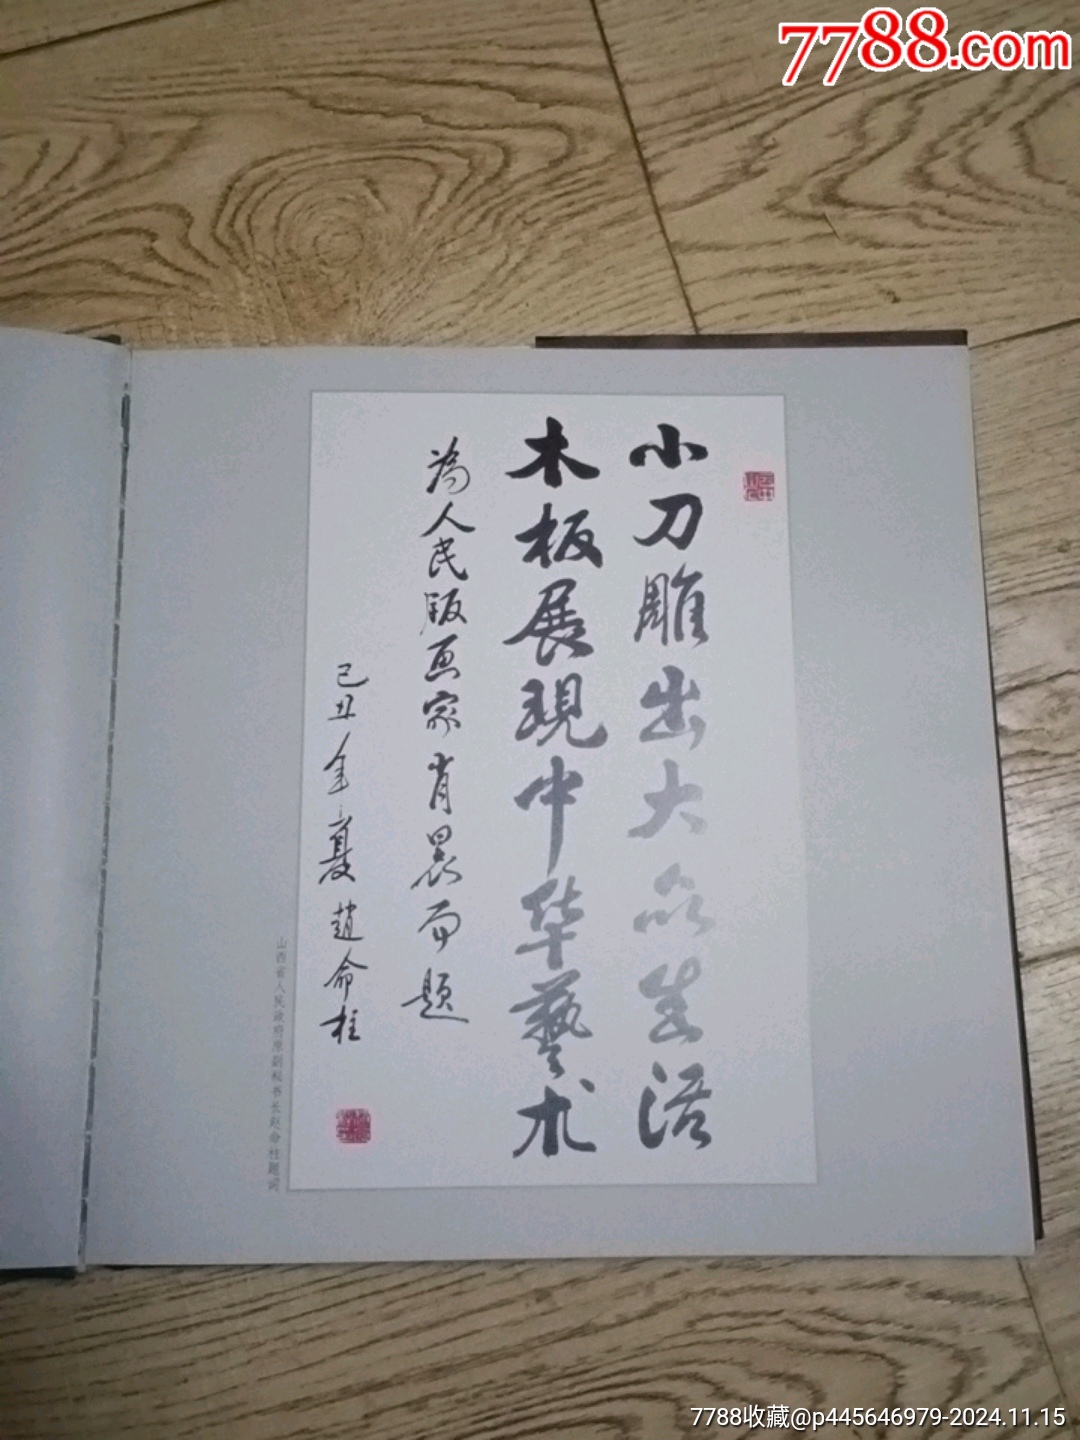 7788.com
小刀雕出大众生活
木板展現中华藝术
為人民版画家肖晨而题
己丑年夏趙命柱
山西省人民政府原副秘书长赵命柱题词
7788收藏@p445646979-2024.11.15